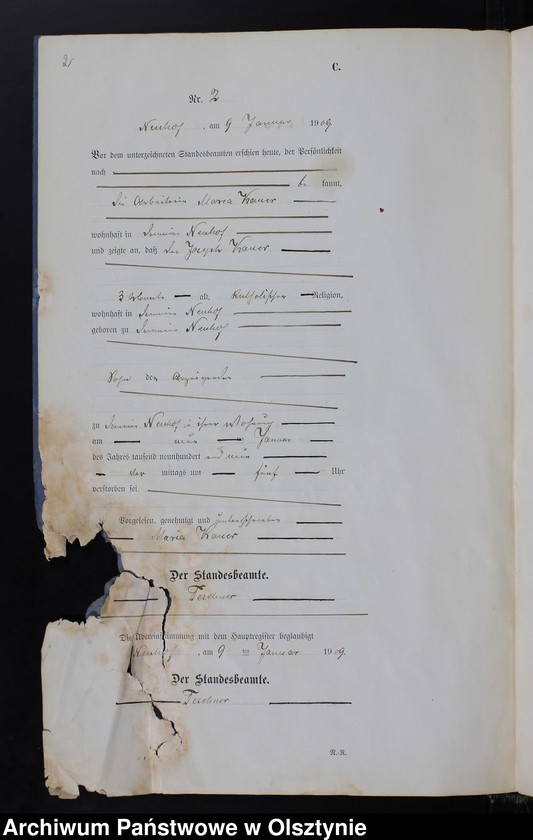 2
C.
Nr. 2
Neuhof, am 9 Januar 1909
Vor dem unterzeichneten Standesbeamten erschien heute, der Persönlichkeit
nach
be kannt,
die Arbeiterin Maria
wohnhaft in Domaine Neuhof
und zeigte an, daß der Joseph
3 Monate alt, katholischer Religion,
wohnhaft in Domaine Neuhof
geboren zu Domaine Neuhof
Sohn der Anzeigenden
zu Domaine Neuhof in ihrer Wohnung
am neun Januar
des Jahres tausend neunhundert und neun
mittags um fünf Uhr
verstorben sei.
Vorgelesen, genehmigt und unterschrieben
Maria
Der Standesbeamte.
Die Übereinstimmung mit dem Hauptregister beglaubigt
Neuhof, am 9 ten Januar 1909.
Der Standesbeamte.
R.-R.
Archiwum Państwowe w Olsztynie